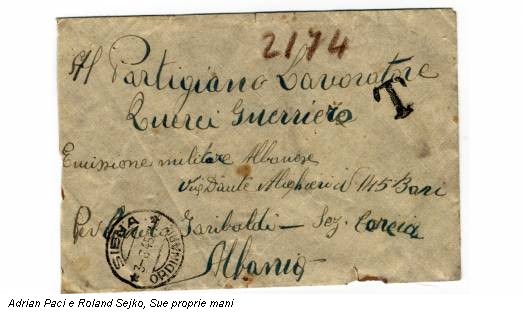 2174
Al Partigiano Lavoratore
T
Querci Guerriero
Emissione militare Albanese
Via Dante Alighieri 145 Bari
Per Garibaldi – Sez.
Albania
SIENA
ORDINARIE
Adrian Paci e Roland Sejko, Sue proprie mani